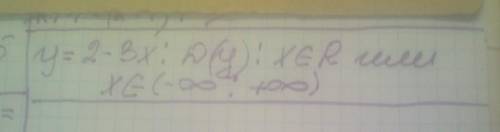 y = 2 - 3x ; D(y) : x ∈ R или
x ∈ (-∞ ; +∞)